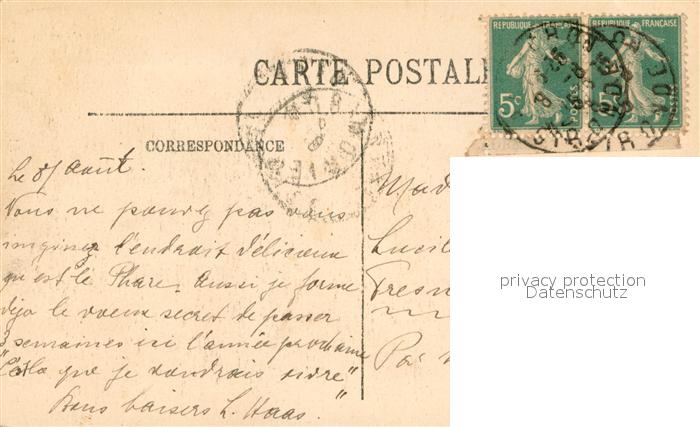 CARTE POSTALE
RÉPUBLIQUE FRANÇAISE
5c
POSTES
CORRESPONDANCE
Le 8 août.
Vous ne pouvez pas vous
imginez l'endroit délicieux
qu'est le Phare. Aussi je forme
déja le voeux secret de passer
3 semaines ici l'année prochaine
"C'est là que je voudrais vivre"
Bons baisers L. Haas.
Mad
Lucil
Fresn
Par
privacy protection
Datenschutz